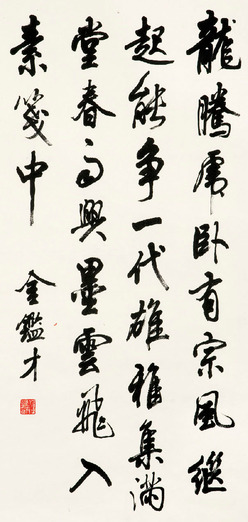 龍騰虎卧有宗風繼
起能爭一代雄雅集滿
堂春雨興墨雲飛入
素箋中
金鑑才